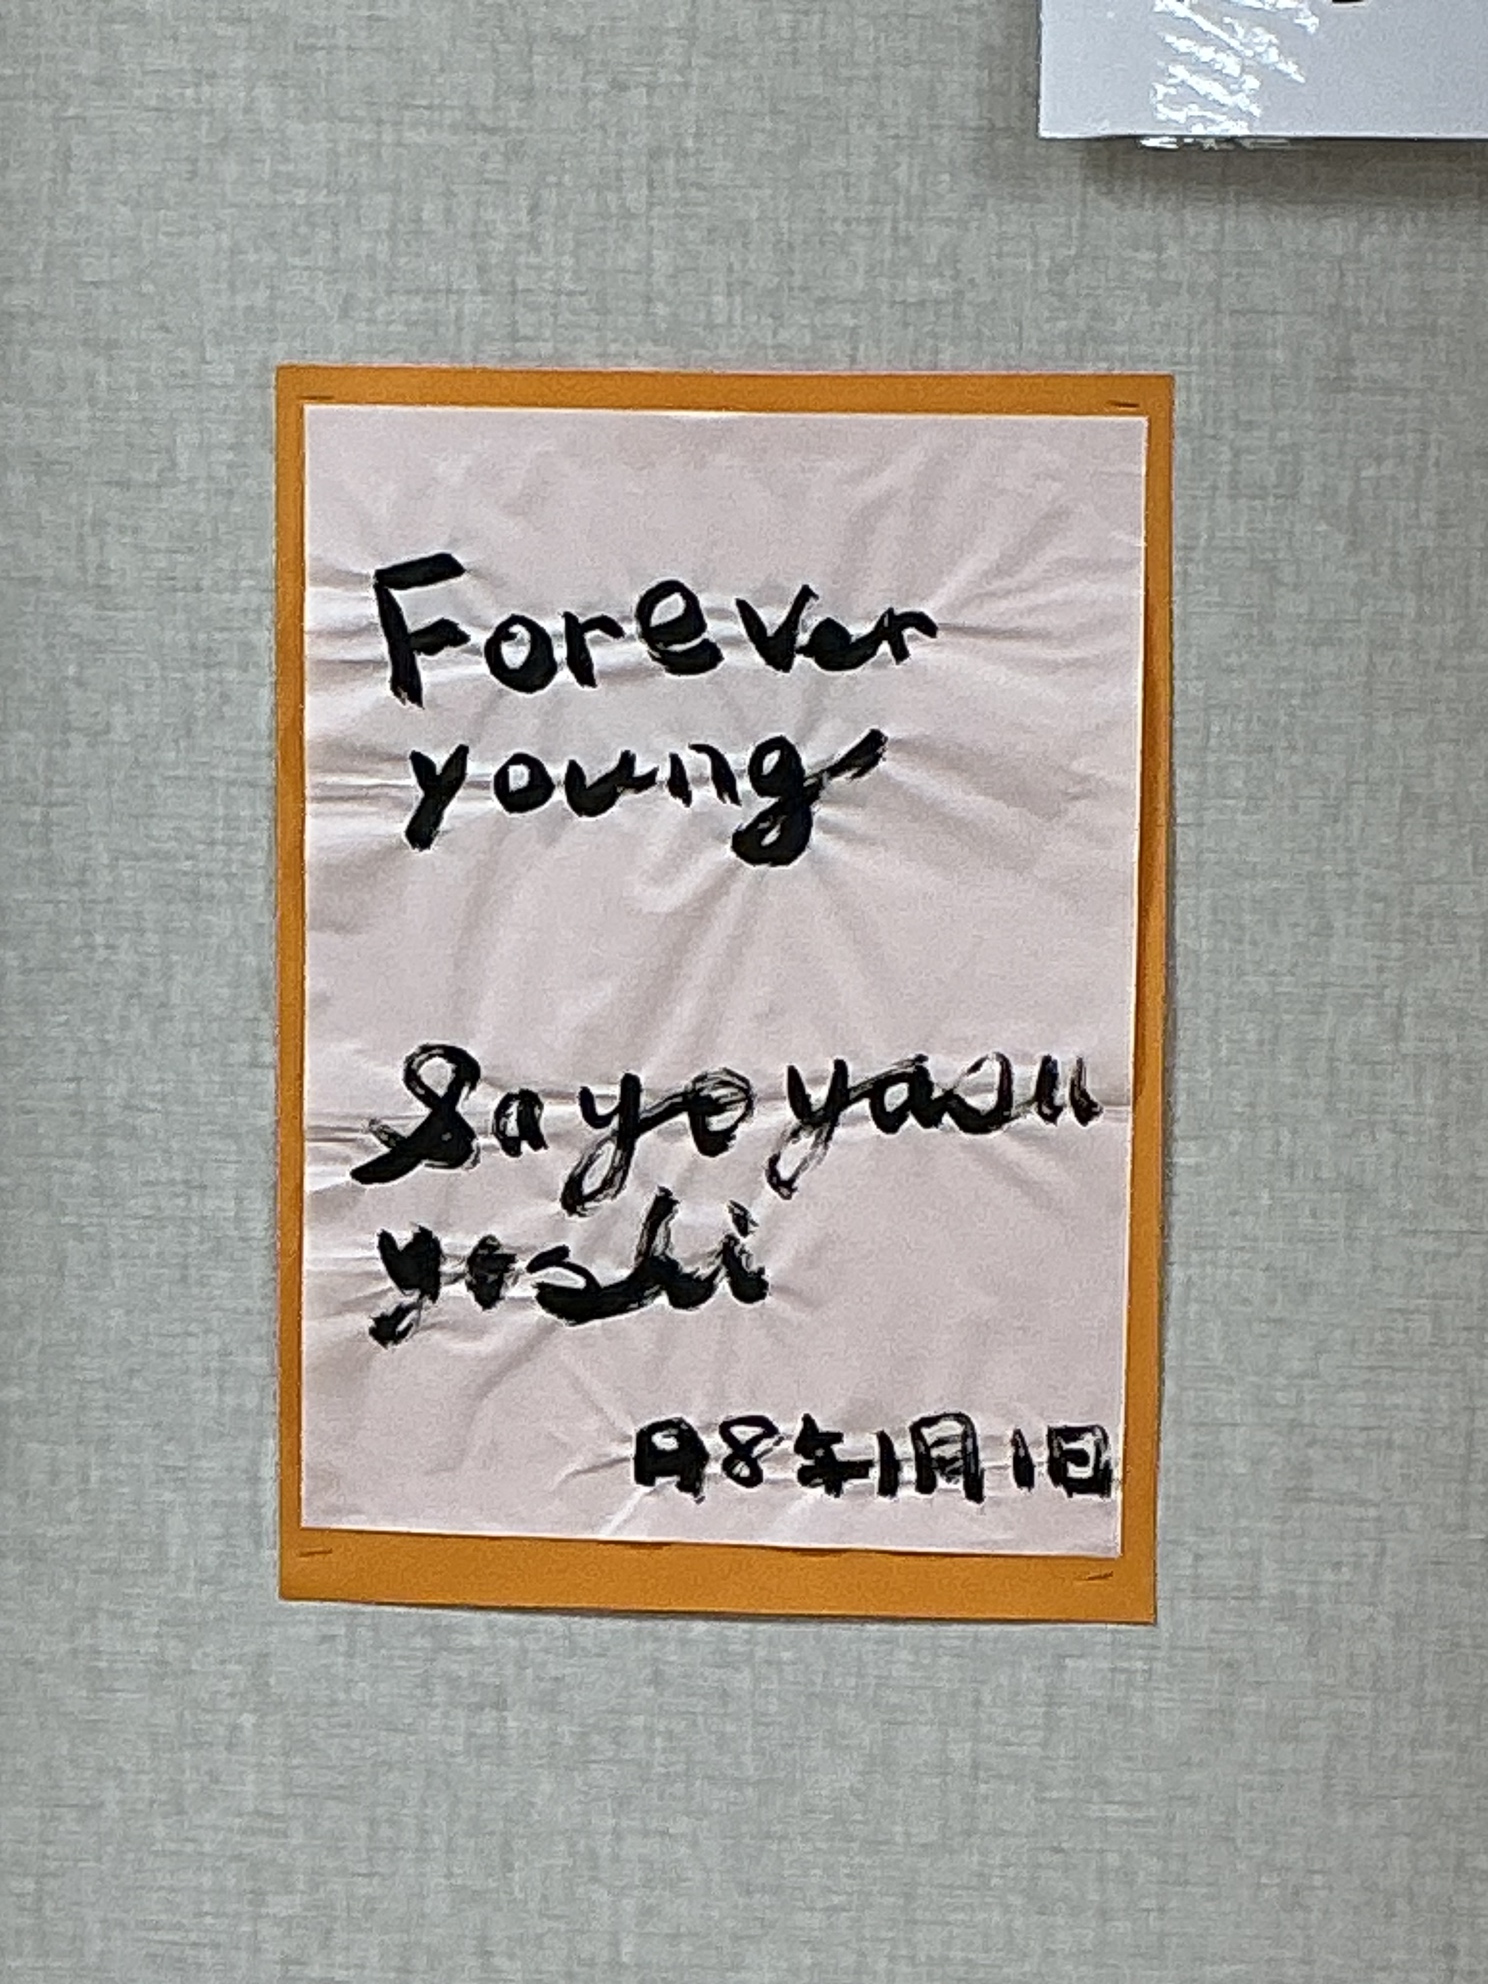 Forever
young
Sayoyasu
yoshi
R8年1月1日